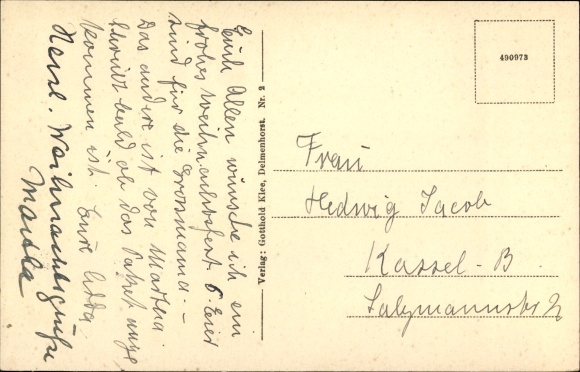 Euch Allen wünsche ich ein
frohes Weihnachtsfest. 6 Eier
sind für die Grossmama. -
Das andere ist von Martha.
Schreibt bald ob das Paket ange
kommen ist. Eure Adda.
Herzl. Weihnachtsgrüße
Martha
Verlag: Gotthold Klee, Delmenhorst. Nr. 2
490973
Frau
Hedwig Jacob
Kassel-B
Salzmannstr. 2